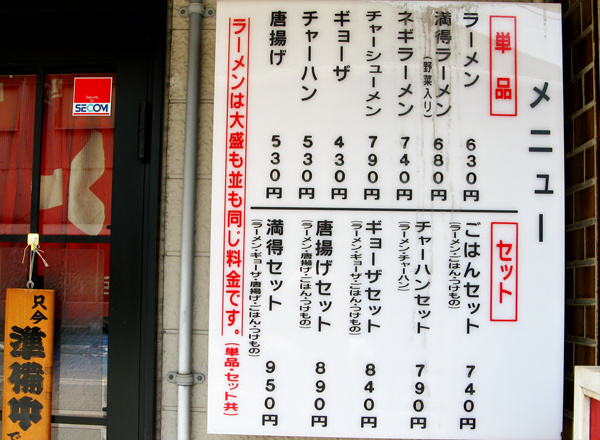 メニュー
単品
ラーメン 630円
満得ラーメン 680円
(野菜入り)
ネギラーメン 740円
チャーシューメン 790円
ギョーザ 430円
チャーハン 530円
唐揚げ 530円
セット
ごはんセット 740円
(ラーメン・ごはん・つけもの)
チャーハンセット 790円
(ラーメン・チャーハン)
ギョーザセット 840円
(ラーメン・ギョーザ・ごはん・つけもの)
唐揚げセット 890円
(ラーメン・唐揚げ・ごはん・つけもの)
満得セット 950円
(ラーメン・ギョーザ・唐揚げ・ごはん・つけもの)
ラーメンは大盛も並も同じ料金です。(単品・セット共)
SECOM
只今
準備中
で